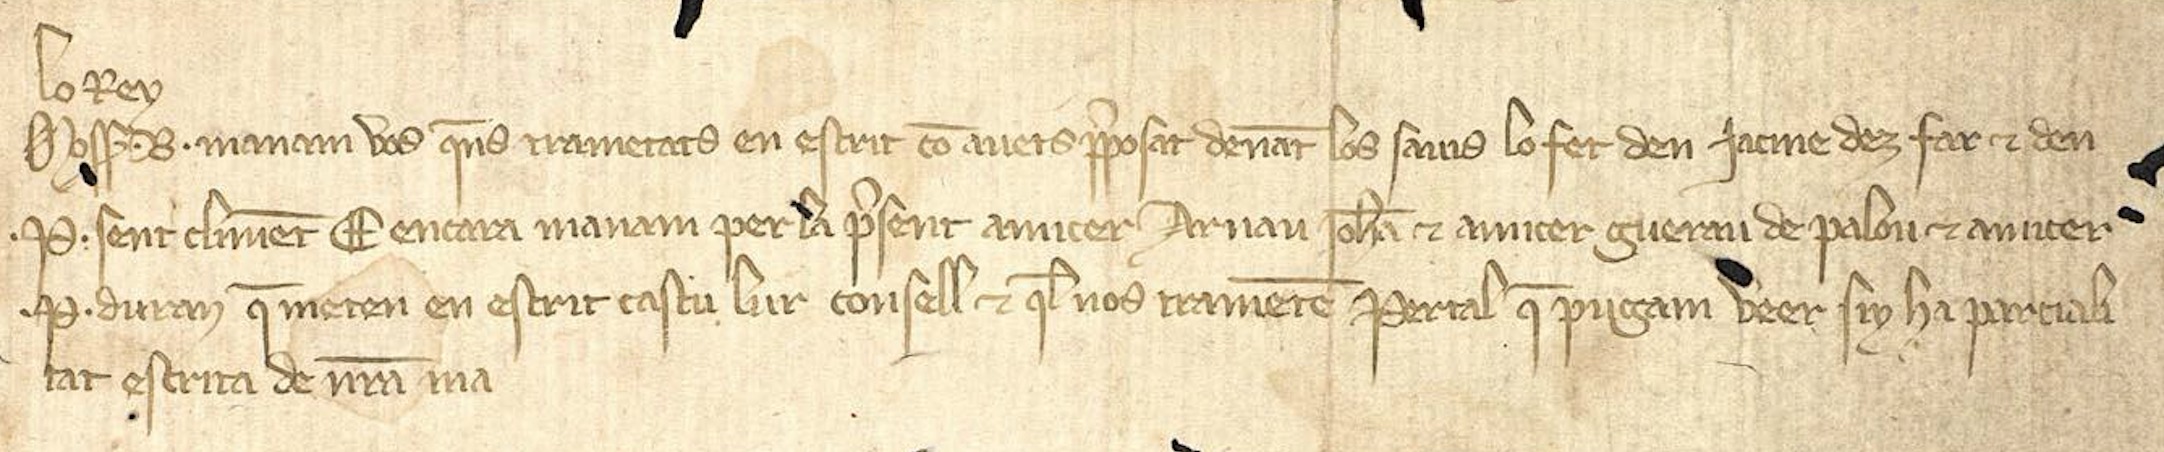 lo Rey
Mossen .B. manam vos q̄ns trametats en escrit cō auets p̱posat deuāt los sauis lo fet den Jacme dez far ⁊ den
.P. sent climēt E encara manam per la p̱sent amicer Arnau Johā ⁊ amicer guerau de palou ⁊ amicer
.P. duran q̄ meten en escrit cascu lur consell ⁊ q̄l nos trametē Pertal q̄ pugam veer siy ha parciali
tat escrita de nr̄a ma